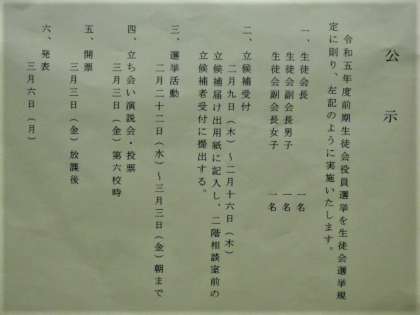 公示
令和五年度前期生徒会役員選挙を生徒会選挙規
定に則り、左記のように実施いたします。
一、生徒会長 一名
生徒会副会長男子 一名
生徒会副会長女子 一名
二、立候補受付
二月九日（木）～二月十六日（木）
立候補届け出用紙に記入し、二階相談室前の
立候補者受付に提出する。
三、選挙活動
二月二十二日（水）～三月三日（金）朝まで
四、立ち会い演説会・投票
三月三日（金）第六校時
五、開票
三月三日（金）放課後
六、発表
三月六日（月）